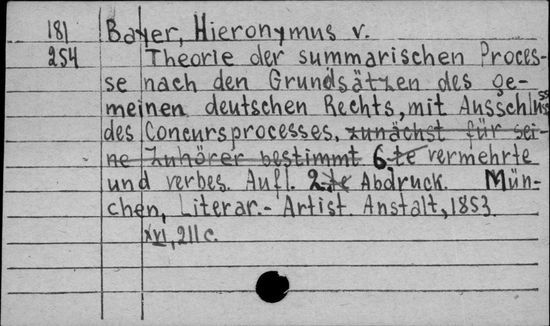 181 Bayer, Hieronymus v.
254 Theorie der summarischen Proces-
se nach den Grundsätzen des ge-
meinen deutschen Rechts, mit Ausschluss
des Concursprocesses, zunächst für sei-
ne Zuhörer bestimmt 6-te vermehrte
und verbes. Aufl. 2-te Abdruck. Mün-
chen, Literar.- Artist. Anstalt, 1853.
XVI, 211 c.